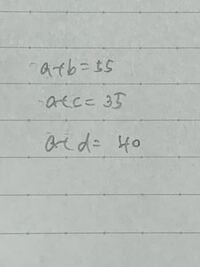 a+b=55
a+c=35
a+d=40